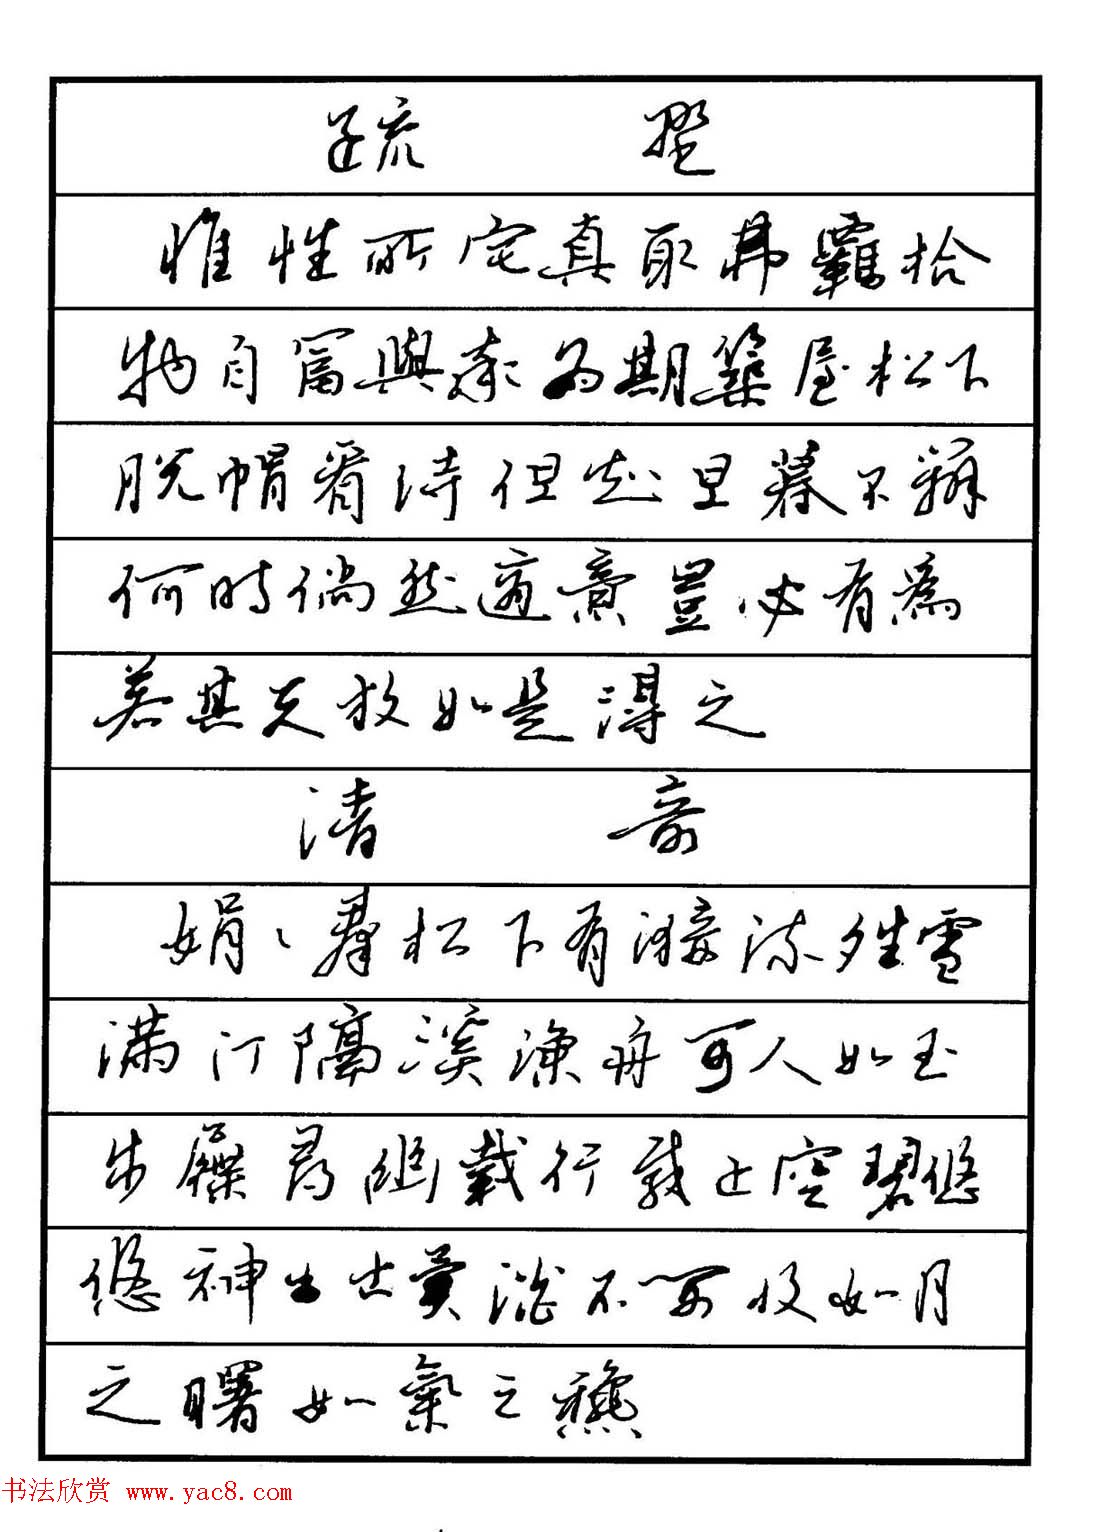 疏 野
惟性所宅真取弗羈拾
物自富與率為期築屋松下
脱帽看詩但知旦暮不辨
何時倘然適意豈必有為
若其天放如是得之
清 奇
娟娟群松下有漪流晴雪
满汀隔溪漁舟可人如玉
步屧尋幽載行載止空碧悠
悠神出古異淡不可收如月
之曙如氣之秋
书法欣赏 www.yac8.com